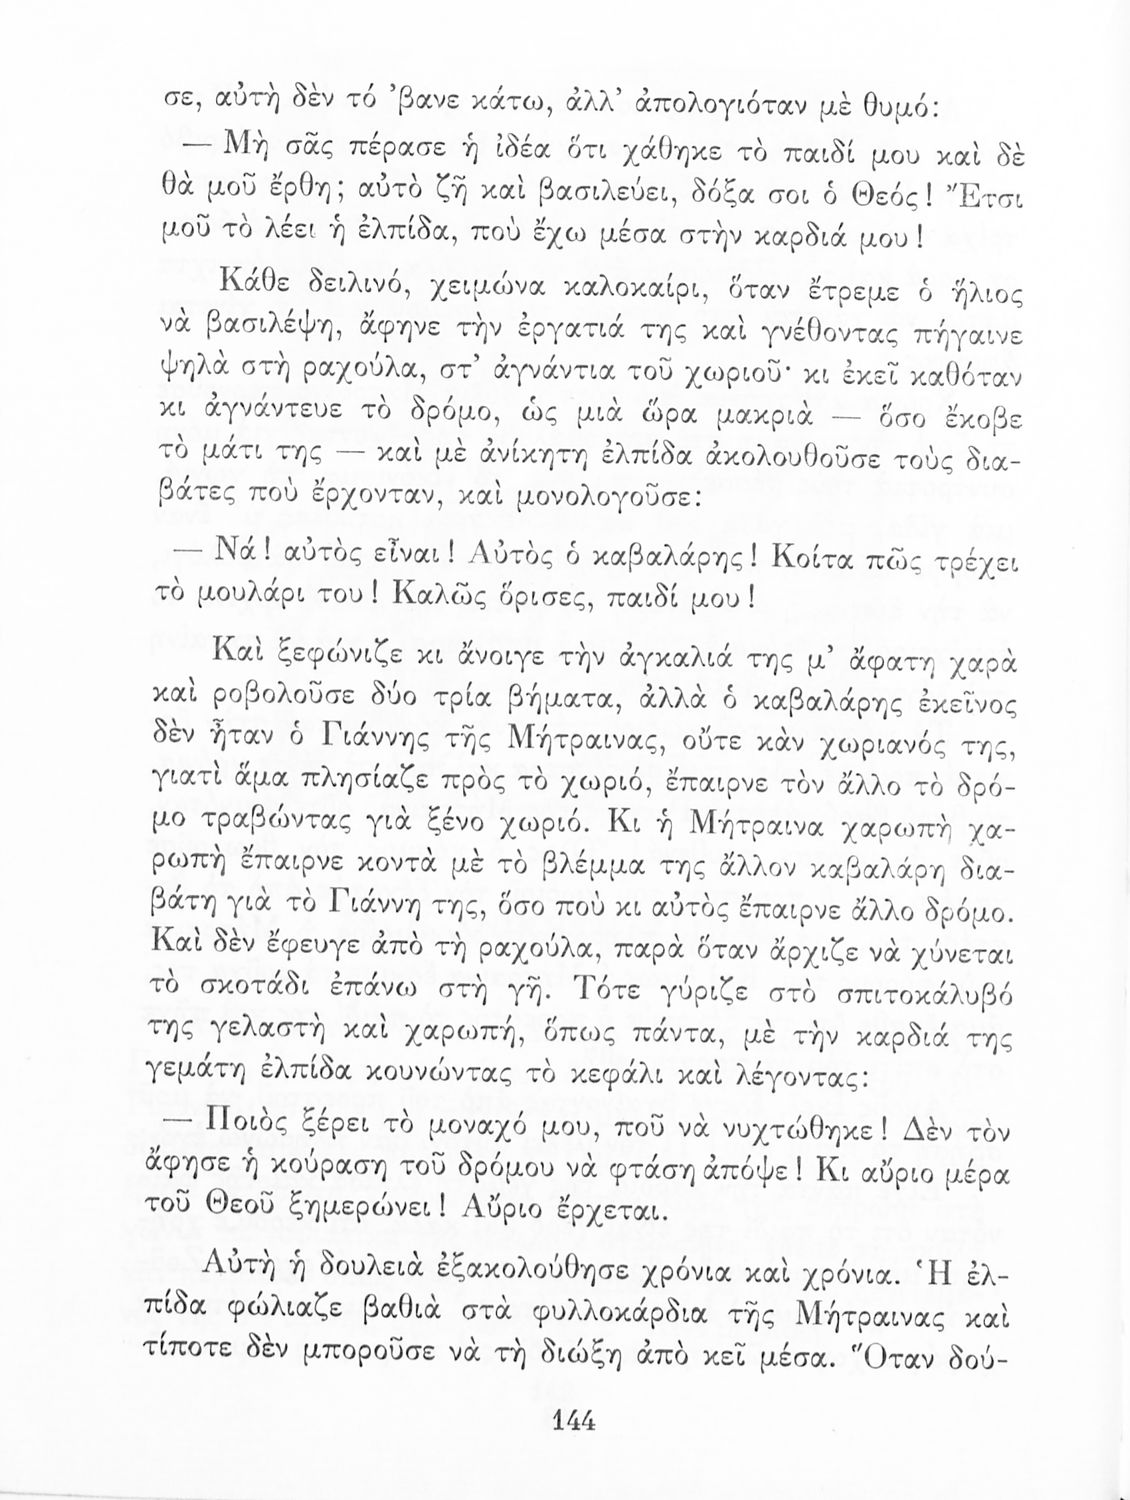 σε, αὐτὴ δὲν τό ’βανε κάτω, ἀλλ’ ἀπολογιόταν μὲ θυμό:
— Μὴ σᾶς πέρασε ἡ ἰδέα ὅτι χάθηκε τὸ παιδί μου καὶ δὲ
θὰ μοῦ ἔρθη; αὐτὸ ζῆ καὶ βασιλεύει, δόξα σοι ὁ Θεός! Ἔτσι
μοῦ τὸ λέει ἡ ἐλπίδα, ποὺ ἔχω μέσα στὴν καρδιά μου!
Κάθε δειλινό, χειμώνα καλοκαίρι, ὅταν ἔτρεμε ὁ ἥλιος
νὰ βασιλέψη, ἄφηνε τὴν ἐργατιά της καὶ γνέθοντας πήγαινε
ψηλὰ στὴ ραχούλα, στ’ ἀγνάντια τοῦ χωριοῦ· κι ἐκεῖ καθόταν
κι ἀγνάντευε τὸ δρόμο, ὡς μιὰ ὥρα μακριὰ — ὅσο ἔκοβε
τὸ μάτι της — καὶ μὲ ἀνίκητη ἐλπίδα ἀκολουθοῦσε τοὺς δια-
βάτες ποὺ ἔρχονταν, καὶ μονολογοῦσε:
— Νά! αὐτὸς εἶναι! Αὐτὸς ὁ καβαλάρης! Κοίτα πῶς τρέχει
τὸ μουλάρι του! Καλῶς ὅρισες, παιδί μου!
Καὶ ξεφώνιζε κι ἄνοιγε τὴν ἀγκαλιά της μ’ ἄφατη χαρὰ
καὶ ροβολοῦσε δύο τρία βήματα, ἀλλὰ ὁ καβαλάρης ἐκεῖνος
δὲν ἦταν ὁ Γιάννης τῆς Μήτραινας, οὔτε κὰν χωριανός της,
γιατὶ ἅμα πλησίαζε πρὸς τὸ χωριό, ἔπαιρνε τὸν ἄλλο τὸ δρό-
μο τραβώντας γιὰ ξένο χωριό. Κι ἡ Μήτραινα χαρωπὴ χα-
ρωπὴ ἔπαιρνε κοντὰ μὲ τὸ βλέμμα της ἄλλον καβαλάρη δια-
βάτη γιὰ τὸ Γιάννη της, ὅσο ποὺ κι αὐτὸς ἔπαιρνε ἄλλο δρόμο.
Καὶ δὲν ἔφευγε ἀπὸ τὴ ραχούλα, παρὰ ὅταν ἄρχιζε νὰ χύνεται
τὸ σκοτάδι ἐπάνω στὴ γῆ. Τότε γύριζε στὸ σπιτοκάλυβό
της γελαστὴ καὶ χαρωπή, ὅπως πάντα, μὲ τὴν καρδιά της
γεμάτη ἐλπίδα κουνώντας τὸ κεφάλι καὶ λέγοντας:
— Ποιὸς ξέρει τὸ μοναχό μου, ποῦ νὰ νυχτώθηκε! Δὲν τὸν
ἄφησε ἡ κούραση τοῦ δρόμου νὰ φτάση ἀπόψε! Κι αὔριο μέρα
τοῦ Θεοῦ ξημερώνει! Αὔριο ἔρχεται.
Αὐτὴ ἡ δουλειὰ ἐξακολούθησε χρόνια καὶ χρόνια. Ἡ ἐλ-
πίδα φώλιαζε βαθιὰ στὰ φυλλοκάρδια τῆς Μήτραινας καὶ
τίποτε δὲν μποροῦσε νὰ τὴ διώξη ἀπὸ κεῖ μέσα. Ὅταν δού-
144